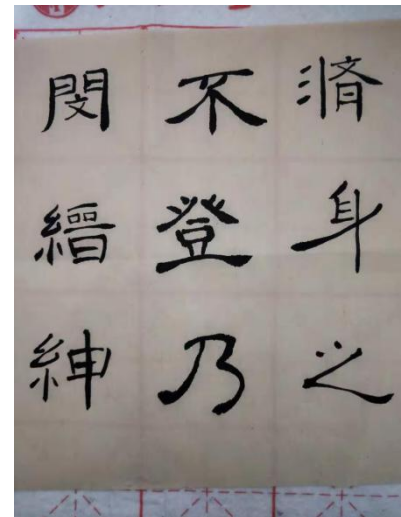 濟身之
不登乃
閔縉紳